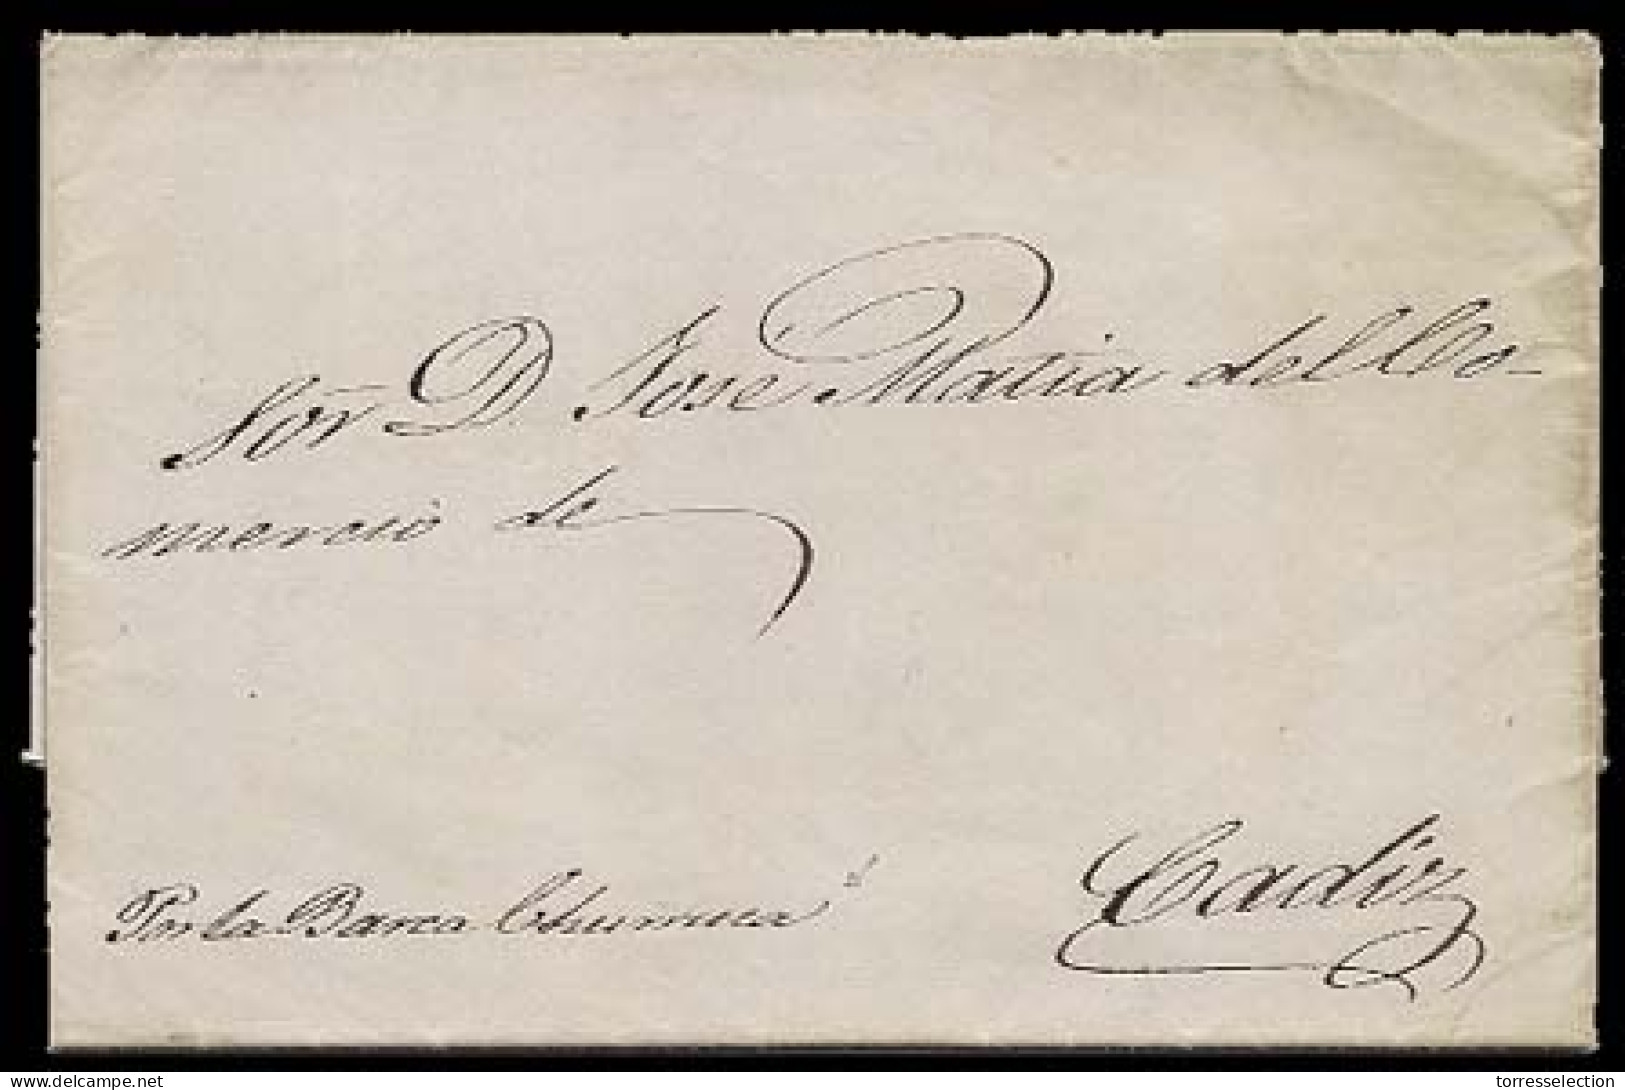 Sor̃ D. Jose Matia del Co-
mercio de
Por la Barca Churruca
Cadiz
delcampe.net
torresselection